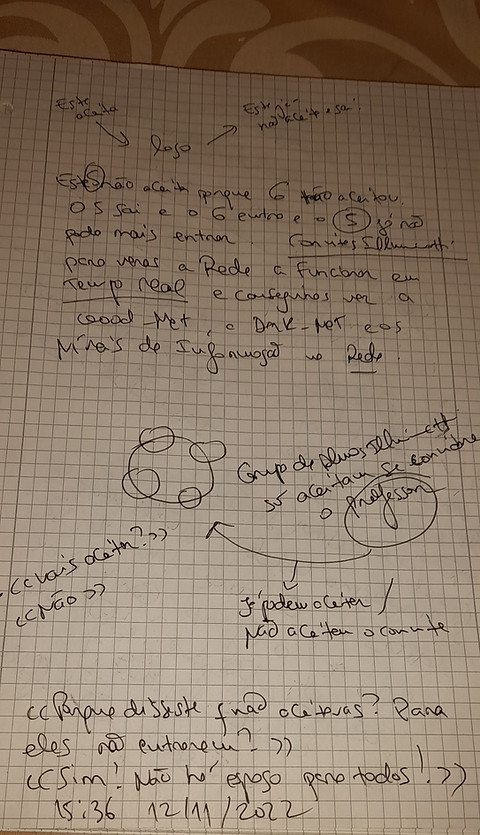 Este
aceita
não aceita e sai!
logo
Este 5 não aceita porque 6 não aceitou.
O 5 sai e o 6 entra e o 5 já não
pode mais entrar. Convites Illuminatti.
para veres a Rede a funcionar em
Tempo real e conseguimos ver a
Good-Net, a Dark-Net e os
de Informação na Rede.
Grupo de alunos Illuminatti
só aceitam se convidre
o professor
<<Vais aceitar?>>
<<Não>>
Já podem aceitar /
Não aceitam o convite
<<Porque disseste q não aceitavas? Para
eles não entrarem?>>
<<Sim! Não há espaço para todos!>>
15:36 12/11/2022